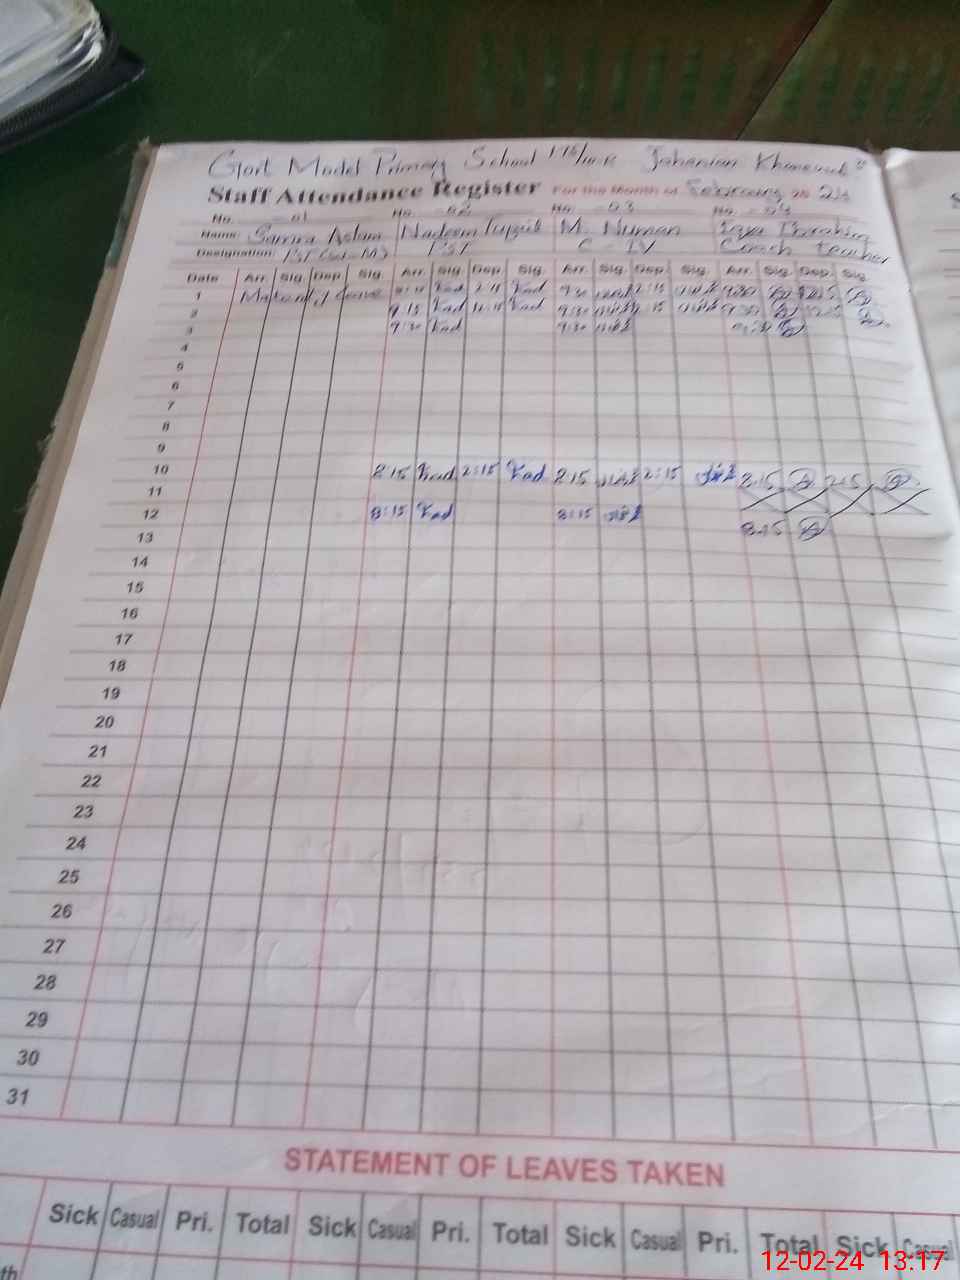 Govt Model Primary School 176/10-R Jahanian Khanewal
Staff Attendance Register For the Month of February 20 24
No. 01 No. 02 No. 03 No. 04
Name: Samra Aslam Nadeem M. Numan Ibrahim
Designation: PST PST C - IV Coach teacher
Date Arr. Sig. Dep. Sig. Arr. Sig. Dep. Sig. Arr. Sig. Dep. Sig. Arr. Sig. Dep. Sig.
1 Maternity Leave 9:30 9:30
2 9:15 9:30 9:30
3 9:30 9:30 9:30
4
5
6
7
8
9
10 8:15 2:15 8:15 2:15 8:15 2:15
11
12 8:15 8:15 8:15
13
14
15
16
17
18
19
20
21
22
23
24
25
26
27
28
29
30
31
STATEMENT OF LEAVES TAKEN
Sick Casual Pri. Total Sick Casual Pri. Total Sick Casual Pri. Total Sick Casual
th
12-02-24 13:17